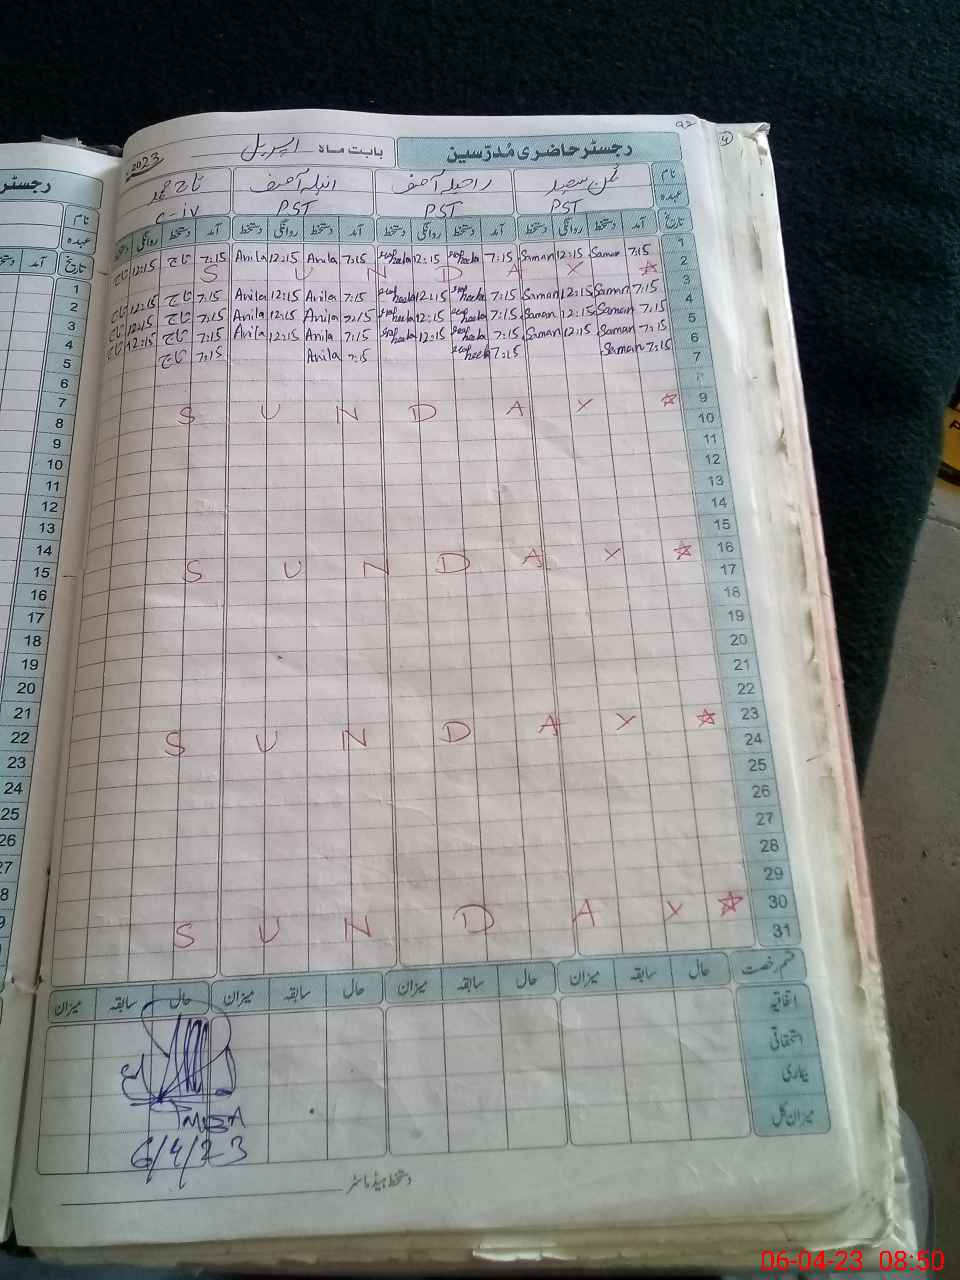 92
رجسٹر حاضری مُدرّسین بابت ماہ اپریل 2023
نام ثمن سعید راحیلہ آصف انیلہ آصف تاج محمد
عہدہ PST PST PST C-iv
تاریخ آمد دستخط روانگی دستخط آمد دستخط روانگی دستخط آمد دستخط روانگی دستخط آمد دستخط روانگی دستخط
1 7:15 Saman 12:15 Saman 7:15 12:15 7:15 Anila 12:15 Anila 7:15 تاج 12:15 تاج
2 S U N D A Y
3 7:15 Saman 12:15 Saman 7:15 12:15 7:15 Anila 12:15 Anila 7:15 تاج 12:15 تاج
4 7:15 Saman 12:15 Saman 7:15 12:15 7:15 Anila 12:15 Anila 7:15 تاج 12:15 تاج
5 7:15 Saman 12:15 Saman 7:15 12:15 7:15 Anila 12:15 Anila 7:15 تاج 12:15 تاج
6 7:15 Saman 7:15 7:15 Anila 7:15 تاج
7
8
9 S U N D A Y
10
11
12
13
14
15
16 S U N D A Y
17
18
19
20
21
22
23 S U N D A Y
24
25
26
27
28
29
30 S U N D A Y
31
قسم رخصت حال سابقہ میزان حال سابقہ میزان حال سابقہ میزان حال سابقہ میزان
اتفاقیہ
استحقاقی
بیماری
میزان کل
6/4/23
دستخط ہیڈ ماسٹر
رجسٹر
نام
عہدہ
تاریخ آمد
1
2
3
4
5
6
7
8
9
10
11
12
13
14
15
16
17
18
19
20
21
22
23
24
25
26
27
06-04-23 08:50